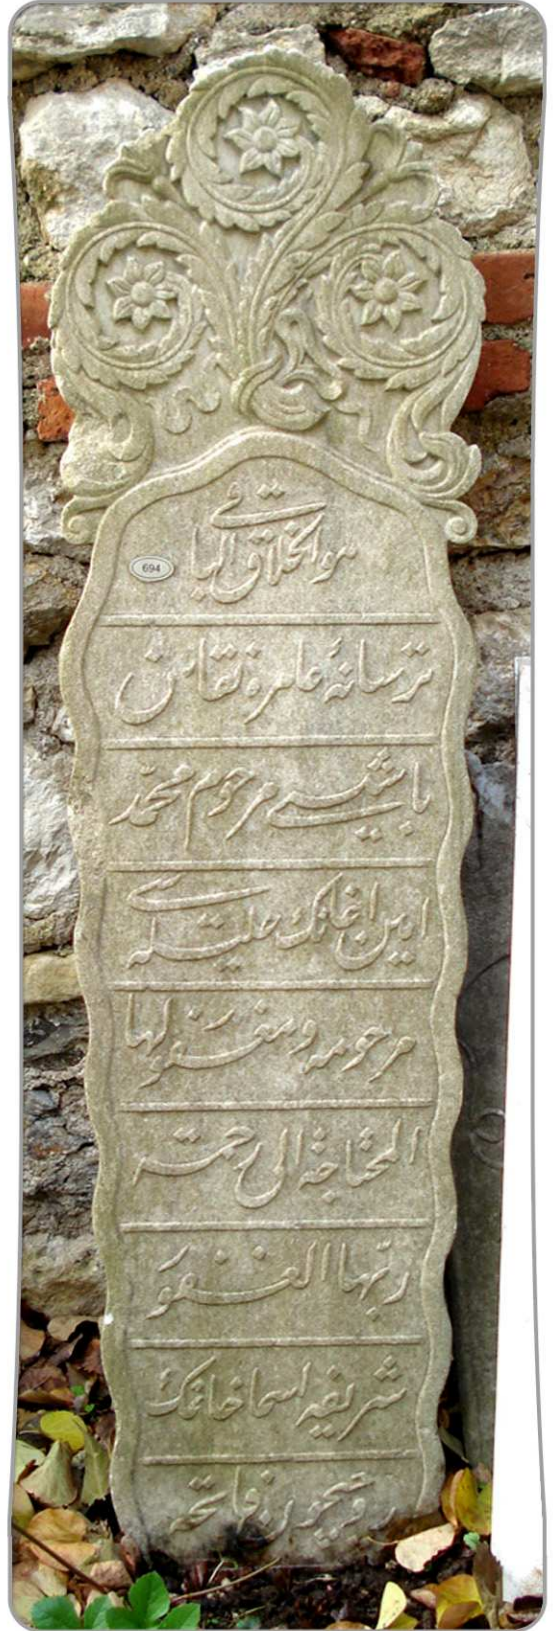 هو الخلاق الباقی
694
ترسانهٔ عامره نقاش
باشیسی مرحوم محمّد
امین اغانك حلیله سی
مرحومه و مغفور لها
المحتاجة الی رحمة
ربّها الغفور
شریفه اسما خانمك
روحیچون فاتحه